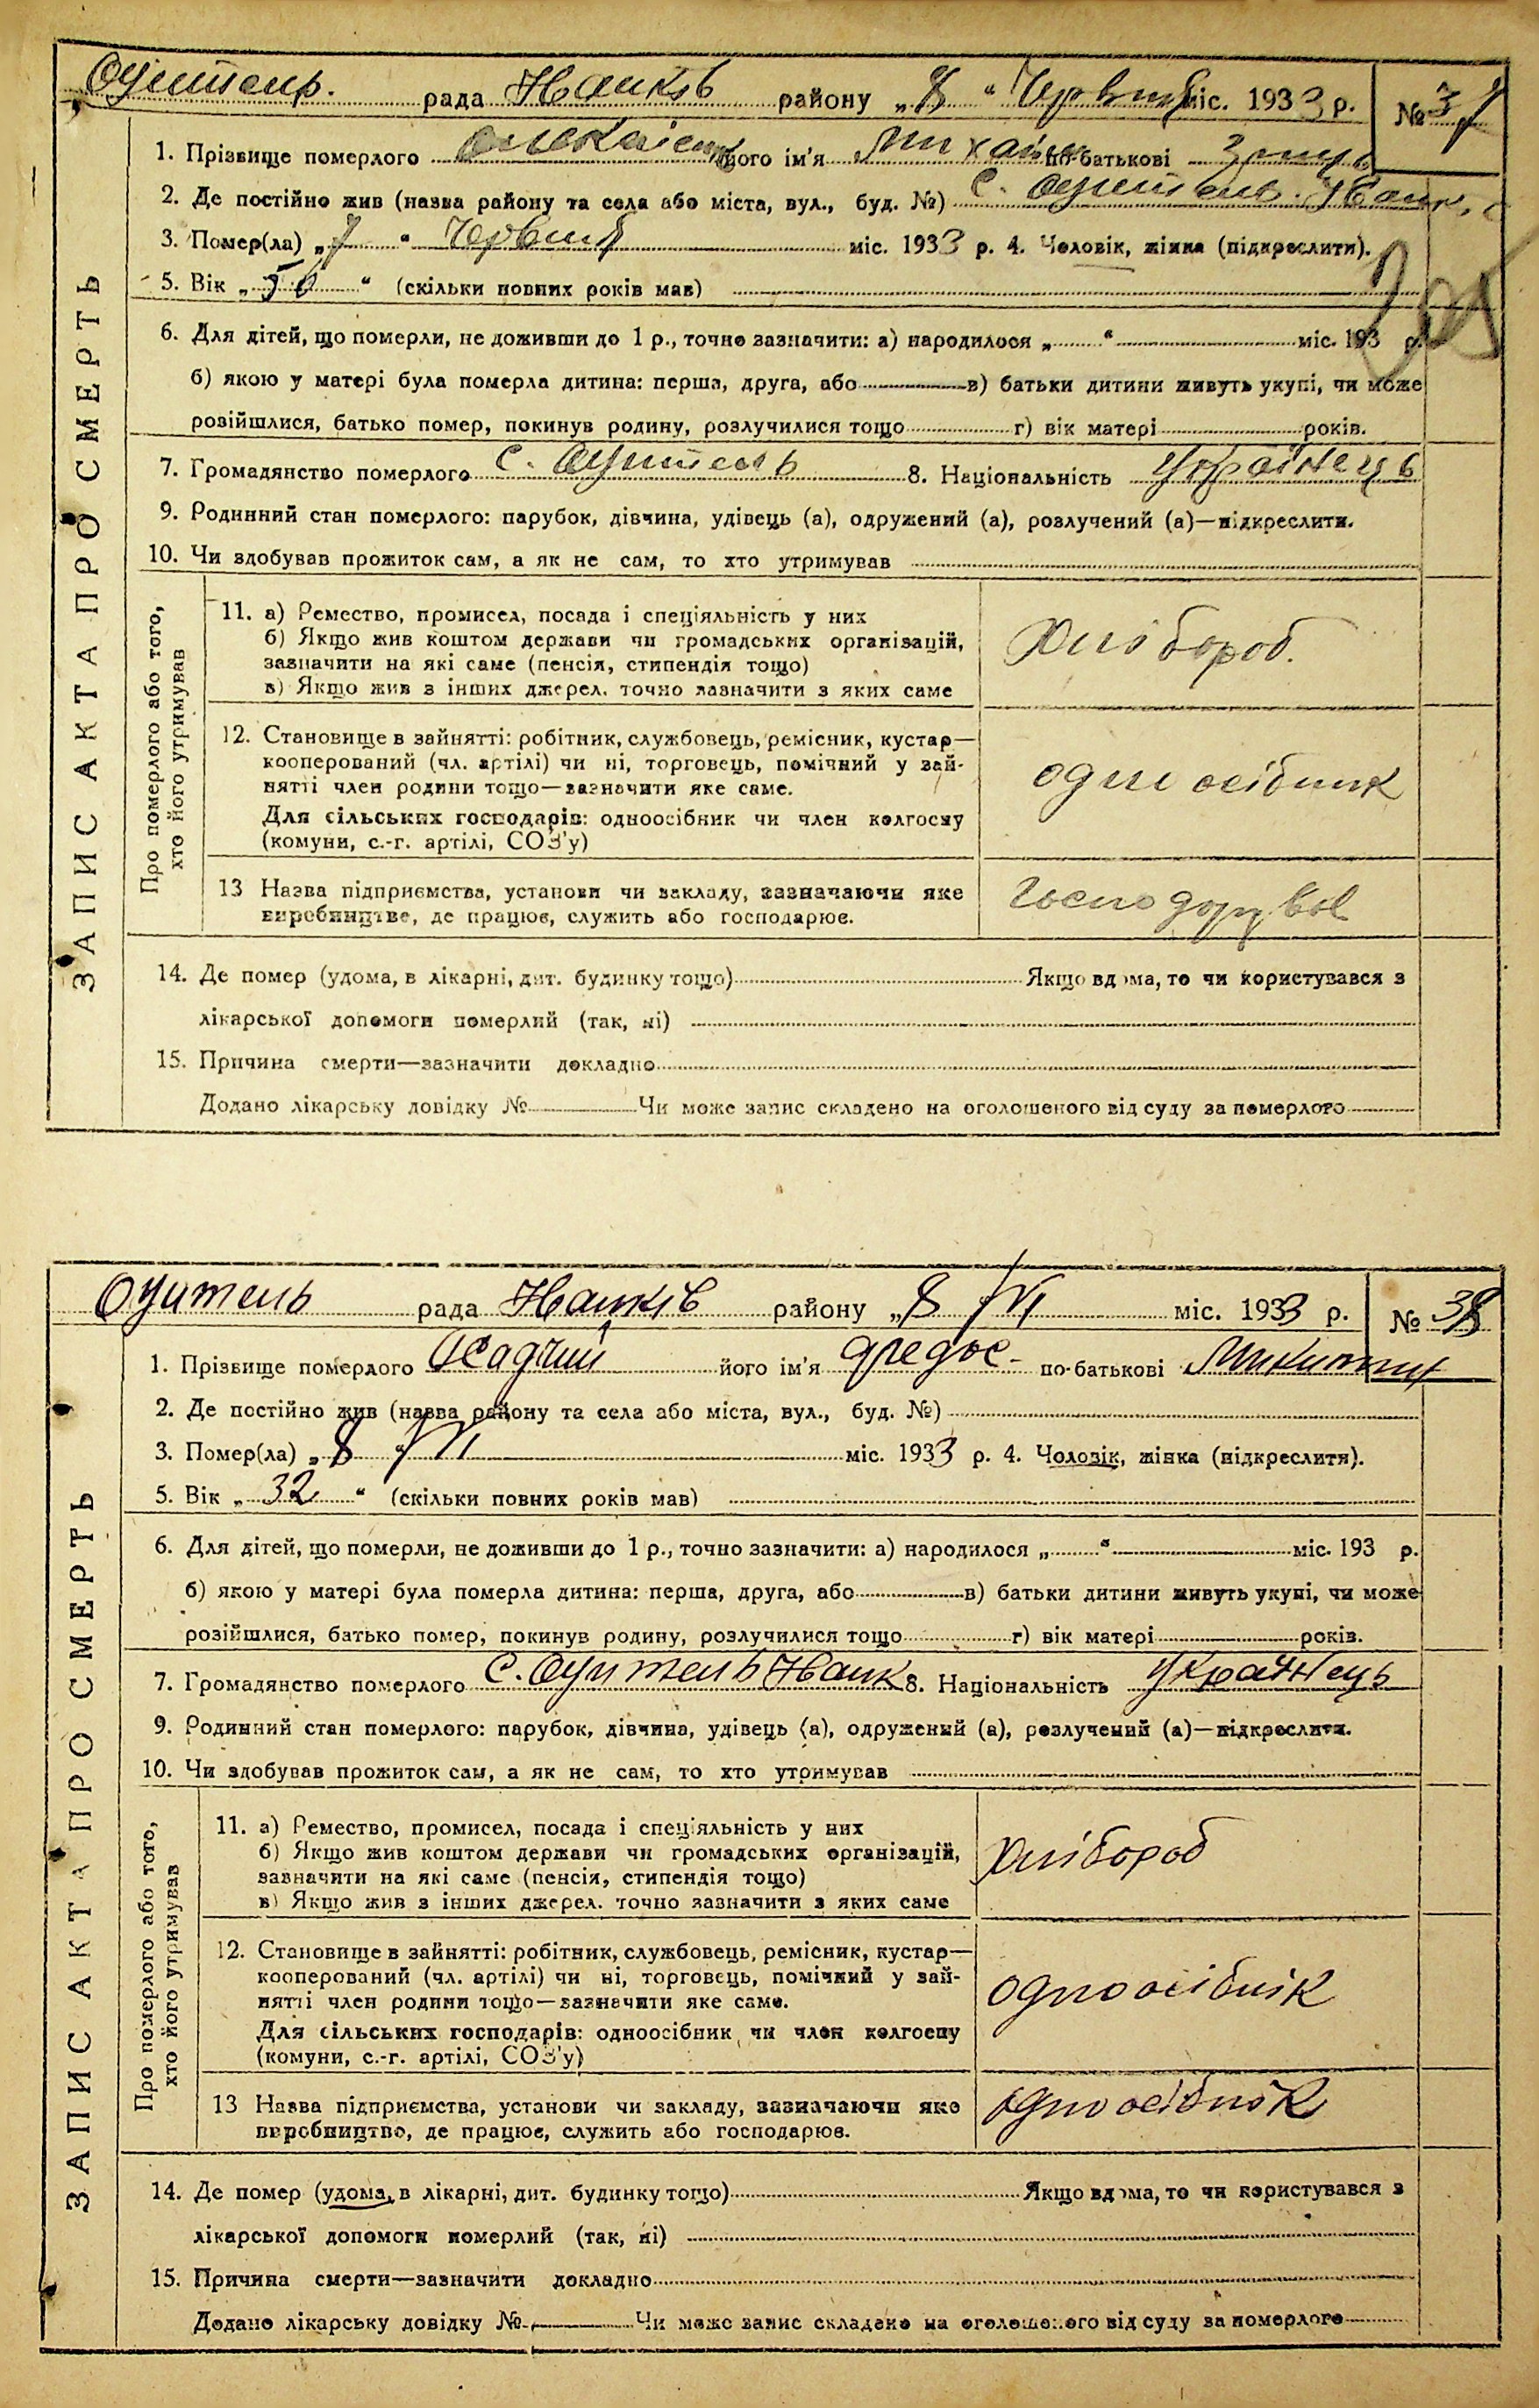 Оуитель. рада Нанків району „8“ Червня міс. 1933 р. № 37
1. Прізвище померлого його ім'я Михайло по-батькові
2. Де постійно жив (назва району та села або міста, вул., буд. №) С.
3. Помер(ла) „7“ Червня міс. 1933 р. 4. Чоловік, жінка (підкреслити).
5. Вік „50“ (скільки повних років мав)
6. Для дітей, що померли, не доживши до 1 р., точно зазначити: а) народилося „ “ міс. 193 р.
б) якою у матері була померла дитина: перша, друга, або в) батьки дитини живуть укупі, чи може
розійшлися, батько помер, покинув родину, розлучилися тощо г) вік матері років.
7. Громадянство померлого С. 8. Національність Українець
9. Родинний стан померлого: парубок, дівчина, удівець (а), одружений (а), розлучений (а)—підкреслити.
10. Чи здобував прожиток сам, а як не сам, то хто утримував
ЗАПИС АКТА ПРО СМЕРТЬ
Про померлого або того,
хто його утримував
11. а) Ремество, промисел, посада і спеціяльність у них
б) Якщо жив коштом держави чи громадських організацій,
зазначити на які саме (пенсія, стипендія тощо)
в) Якщо жив з інших джерел. точно зазначити з яких саме
Хлібороб.
12. Становище в зайнятті: робітник, службовець, ремісник, кустар—
кооперований (чл. артілі) чи ні, торговець, помічний у зай-
нятті член родини тощо—зазначити яке саме.
Для сільських господарів: одноосібник чи член колгоспу
(комуни, с.-г. артілі, СОЗ'у)
одноосібник
13 Назва підприємства, установи чи закладу, зазначаючи яке
виробництво, де працює, служить або господарює.
14. Де помер (удома, в лікарні, дит. будинку тощо) Якщо вдома, то чи користувався з
лікарської допомоги померлий (так, ні)
15. Причина смерти—зазначити докладно
Додано лікарську довідку № Чи може запис складено на оголошеного від суду за померлого
Оуитель рада Нанків району „8“ VI міс. 1933 р. № 38
1. Прізвище померлого Осадчий його ім'я Федос- по-батькові Микитин
2. Де постійно жив (назва району та села або міста, вул., буд. №)
3. Помер(ла) „8“ VI міс. 1933 р. 4. Чоловік, жінка (підкреслити).
5. Вік „32“ (скільки повних років мав)
6. Для дітей, що померли, не доживши до 1 р., точно зазначити: а) народилося „ “ міс. 193 р.
б) якою у матері була померла дитина: перша, друга, або в) батьки дитини живуть укупі, чи може
розійшлися, батько помер, покинув родину, розлучилися тощо г) вік матері років.
7. Громадянство померлого С. Оуитель Нанк 8. Національність Українець
9. Родинний стан померлого: парубок, дівчина, удівець (а), одружений (а), розлучений (а)—підкреслити.
10. Чи здобував прожиток сам, а як не сам, то хто утримував
ЗАПИС АКТА ПРО СМЕРТЬ
Про померлого або того,
хто його утримував
11. а) Ремество, промисел, посада і спеціяльність у них
б) Якщо жив коштом держави чи громадських організацій,
зазначити на які саме (пенсія, стипендія тощо)
в) Якщо жив з інших джерел. точно зазначити з яких саме
Хлібороб
12. Становище в зайнятті: робітник, службовець, ремісник, кустар—
кооперований (чл. артілі) чи ні, торговець, помічний у зай-
нятті член родини тощо—зазначити яке саме.
Для сільських господарів: одноосібник чи член колгоспу
(комуни, с.-г. артілі, СОЗ'у)
одноосібнік
13 Назва підприємства, установи чи закладу, зазначаючи яке
виробництво, де працює, служить або господарює.
одноосібнік
14. Де помер (удома, в лікарні, дит. будинку тощо) Якщо вдома, то чи користувався з
лікарської допомоги померлий (так, ні)
15. Причина смерти—зазначити докладно
Додано лікарську довідку № Чи може запис складено на оголошеного від суду за померлого